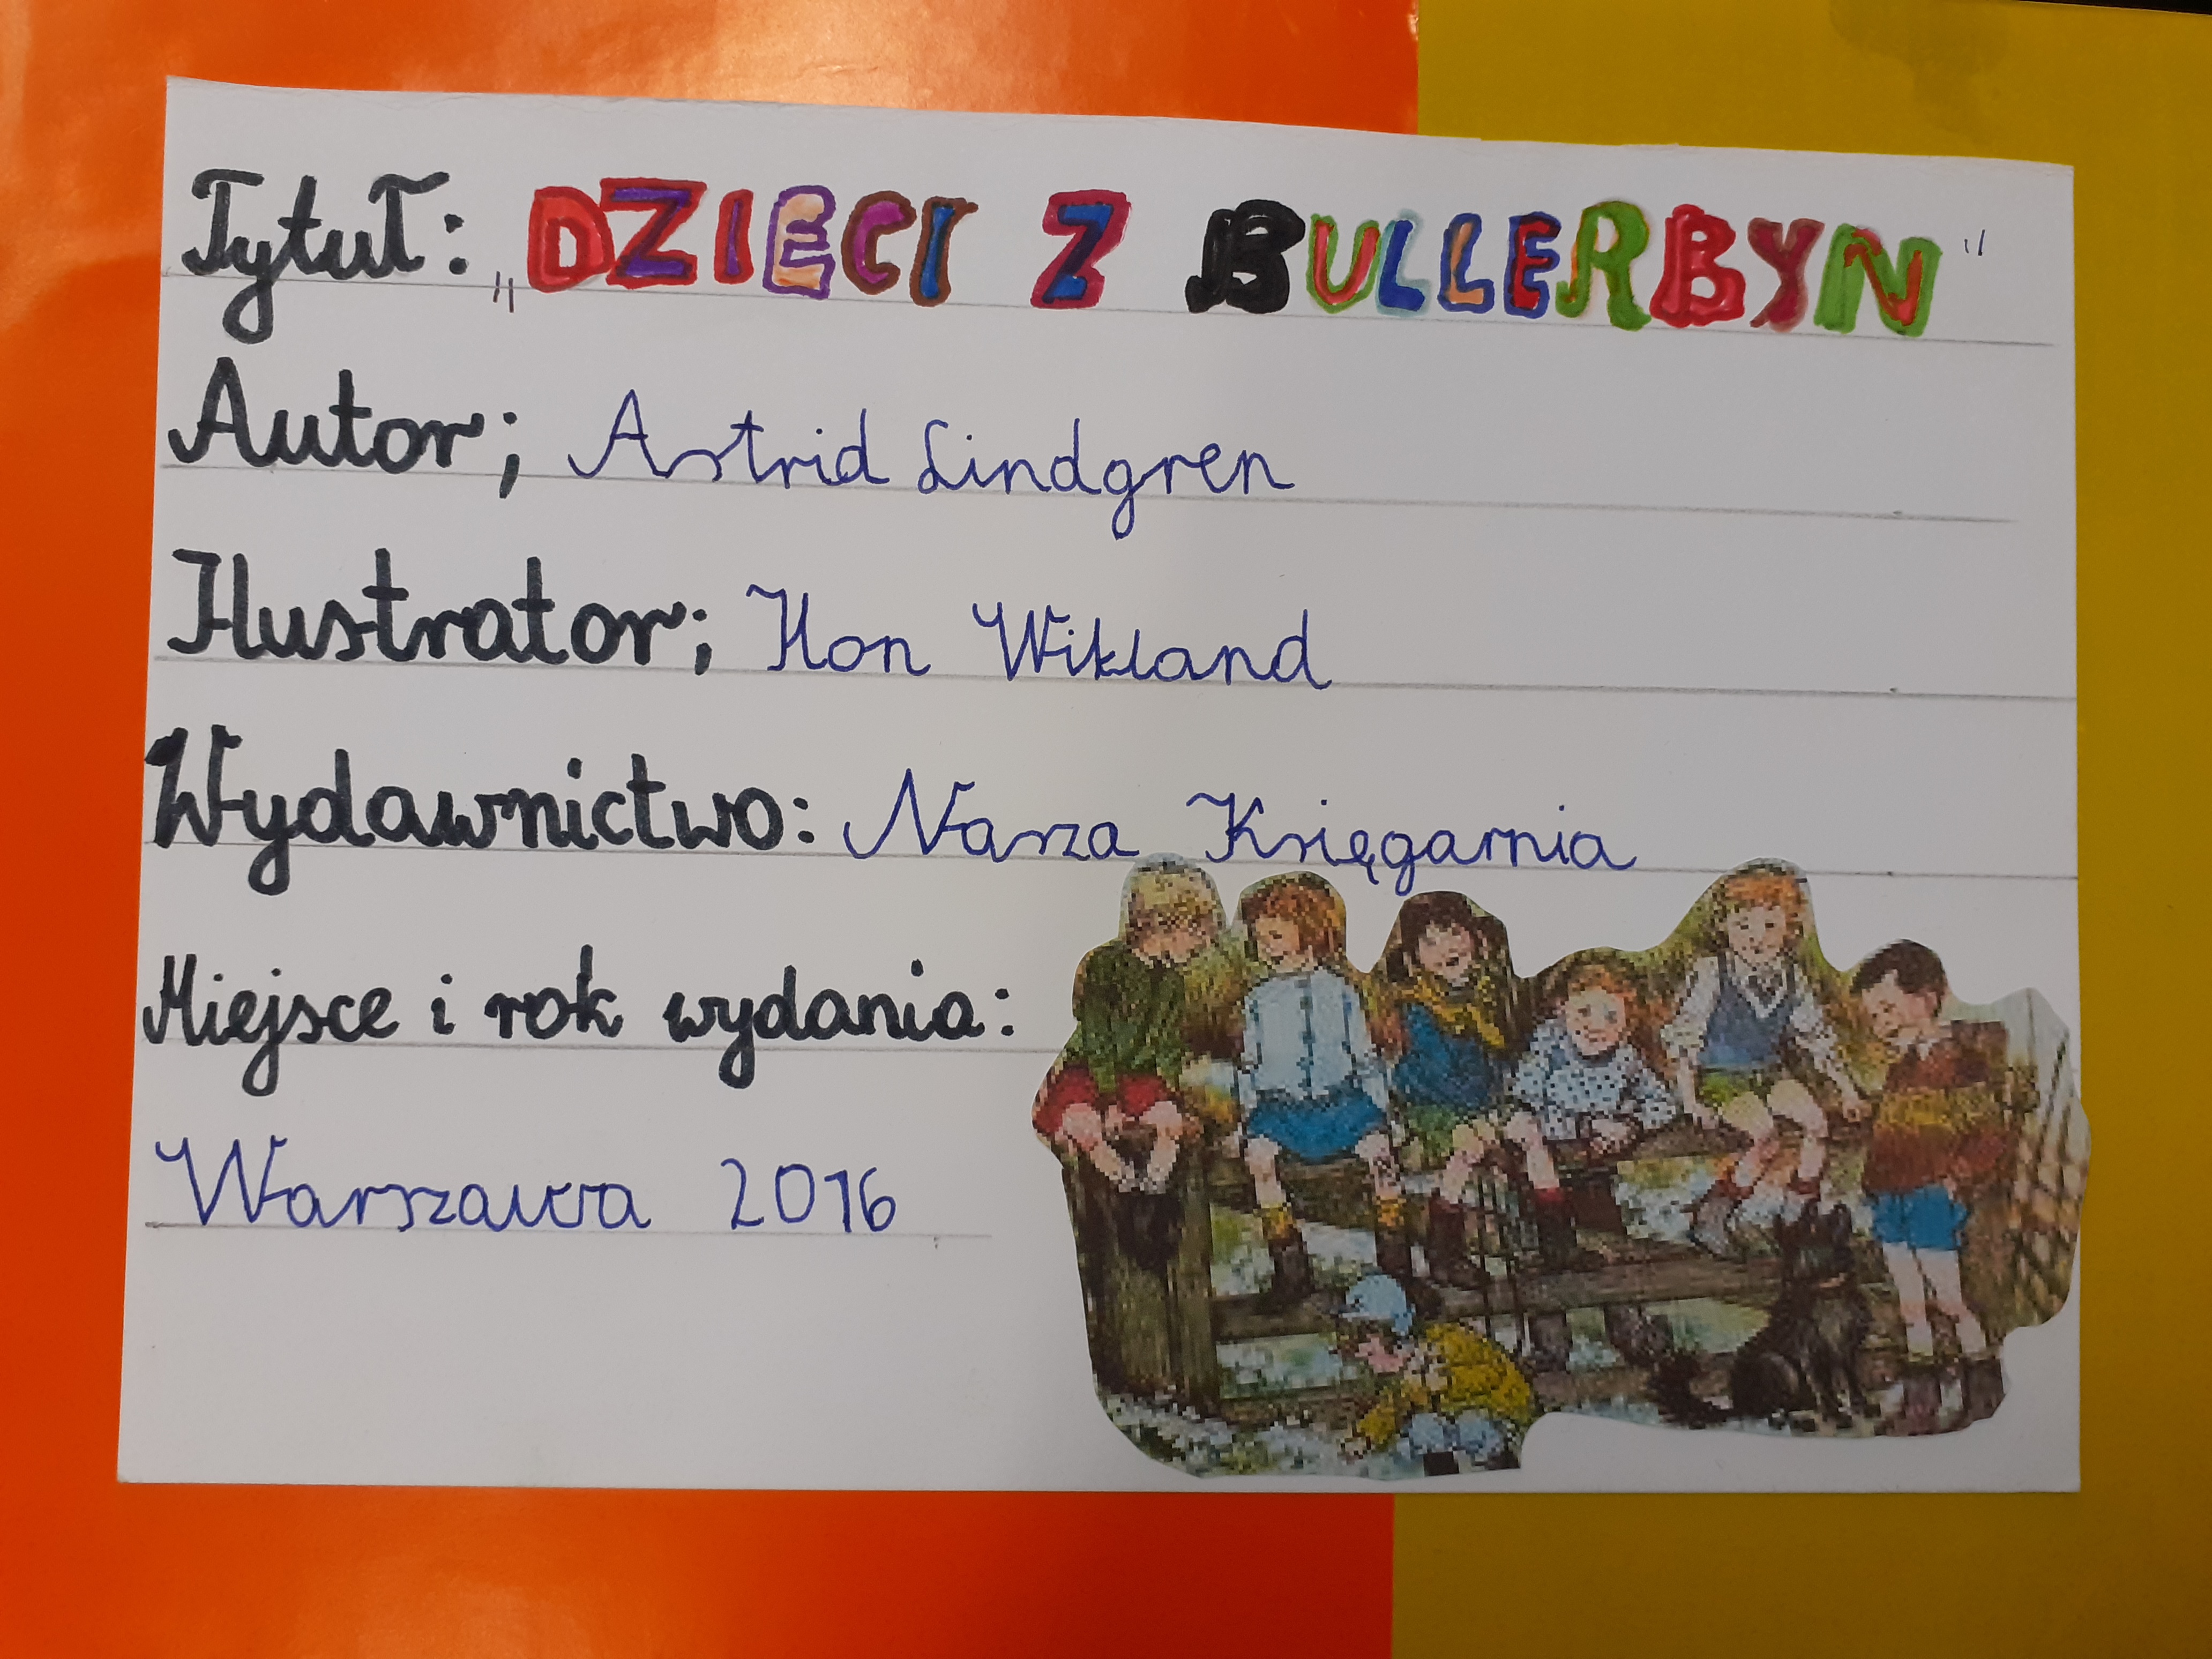 Tytuł: „DZIECI Z BULLERBYN"
Autor; Astrid Lindgren
Ilustrator; Ilon Wikland
Wydawnictwo: Nasza Księgarnia
Miejsce i rok wydania:
Warszawa 2016